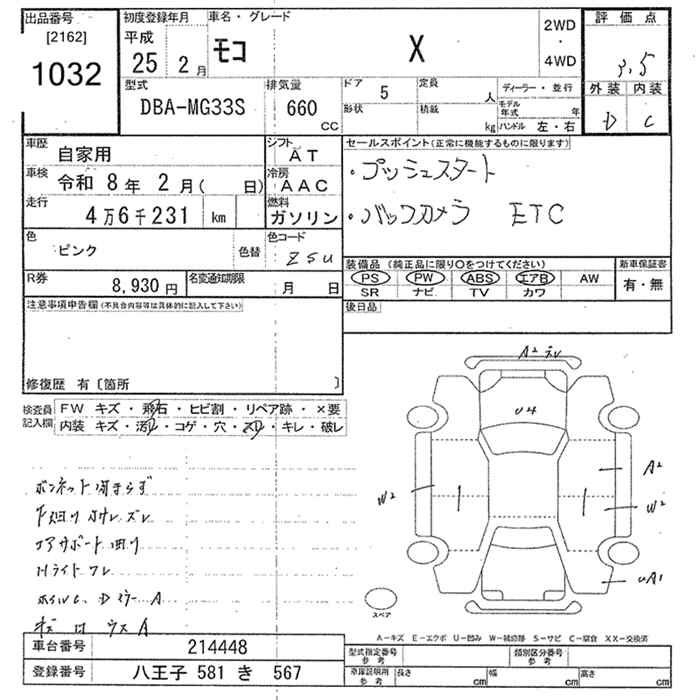 出品番号
[2162]
1032
初度登録年月
平成
25 2月
車名・グレード
モコ X
2WD
・
4WD
評価点
3.5
外装 内装
D C
型式
DBA-MG33S
排気量
660
CC
ドア
5
形状
定員
人
積載
kg
ディーラー・並行
モデル年式 年
ハンドル 左・右
車歴
自家用
シフト
AT
車検
令和 8年 2月( 日)
冷房
AAC
走行
4万6千231 km
燃料
ガソリン
色
ピンク
色替
色コード
ZSU
R券
8,930円
名変通知期限
月 日
セールスポイント(正常に機能するものに限ります)
・プッシュスタート
・バックカメラ ETC
装備品(純正品に限り○をつけてください)
PS PW ABS エアB AW
SR ナビ TV カワ
新車保証書
有・無
注意事項申告欄(不具合内容等は具体的に記入して下さい)
後日品
修復歴 有〔箇所 〕
検査員記入欄
FW キズ・飛石・ヒビ割・リペア跡・×要
内装 キズ・汚レ・コゲ・穴・スレ・キレ・破レ
ボンネット閉まらず
下廻り サケレ ズレ
コアサポート曲り
Hライト ワレ
A2
U4
A2
W2
W2
UA1
スペア
A-キズ E-エクボ U-凹み W-補修跡 S-サビ C-腐食 XX-交換済
車台番号
214448
登録番号
八王子 581 き 567
型式指定番号
参考
類別区分番号
参考
車庫証明用
参考
長さ cm
幅 cm
高さ cm